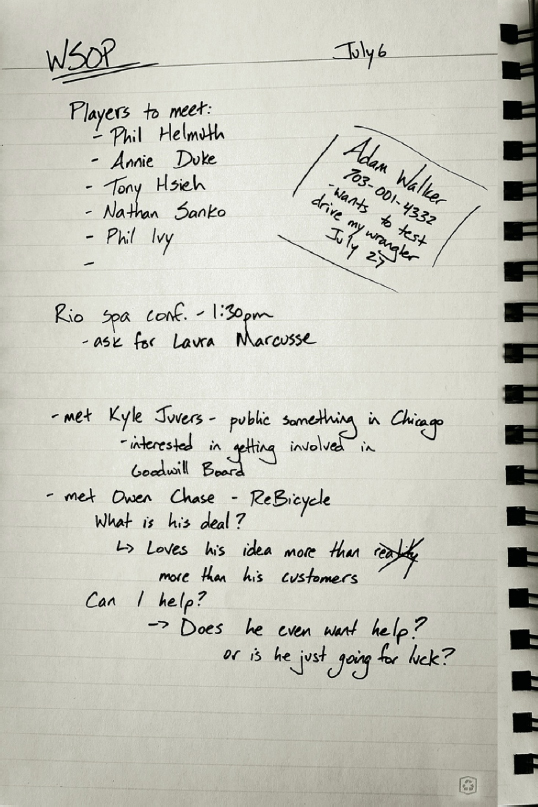 WSOP
July 6
Players to meet:
- Phil Helmuth
- Annie Duke
- Tony Hsieh
- Nathan Sanko
- Phil Ivy
-
Adam Walker
703-001-4332
-wants to test
drive my wrangler
July 27
Rio spa conf. - 1:30pm
-ask for Laura Marcusse
-met Kyle Juvers - public something in Chicago
-interested in getting involved in
Goodwill Board
- met Owen Chase - ReBicycle
What is his deal?
↳ Loves his idea more than reality
more than his customers
Can I help?
-> Does he even want help?
or is he just going for luck?